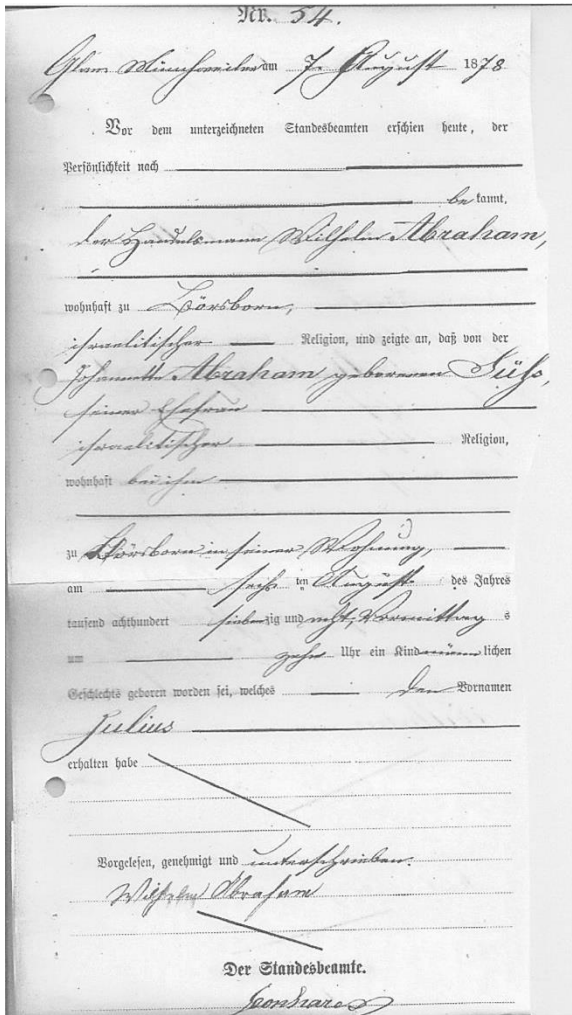 Nr. 54.
Glan Münchweiler am 7. August 1878
Vor dem unterzeichneten Standesbeamten erschien heute, der
Persönlichkeit nach
be kannt,
der Handelsmann Wilhelm Abraham,
wohnhaft zu Börsborn,
israelitischer Religion, und zeigte an, daß von der
Johannetta Abraham geborenen Süß,
seiner Ehefrau
israelitischer Religion,
wohnhaft bei ihm
zu Börsborn in seiner Wohnung,
am sechs ten August des Jahres
tausend achthundert siebenzig und acht, Vormittag s
um zehn Uhr ein Kind männ lichen
Geschlechts geboren worden sei, welches den Vornamen
Julius
erhalten habe
Vorgelesen, genehmigt und unterschrieben.
Wilhelm Abraham
Der Standesbeamte.